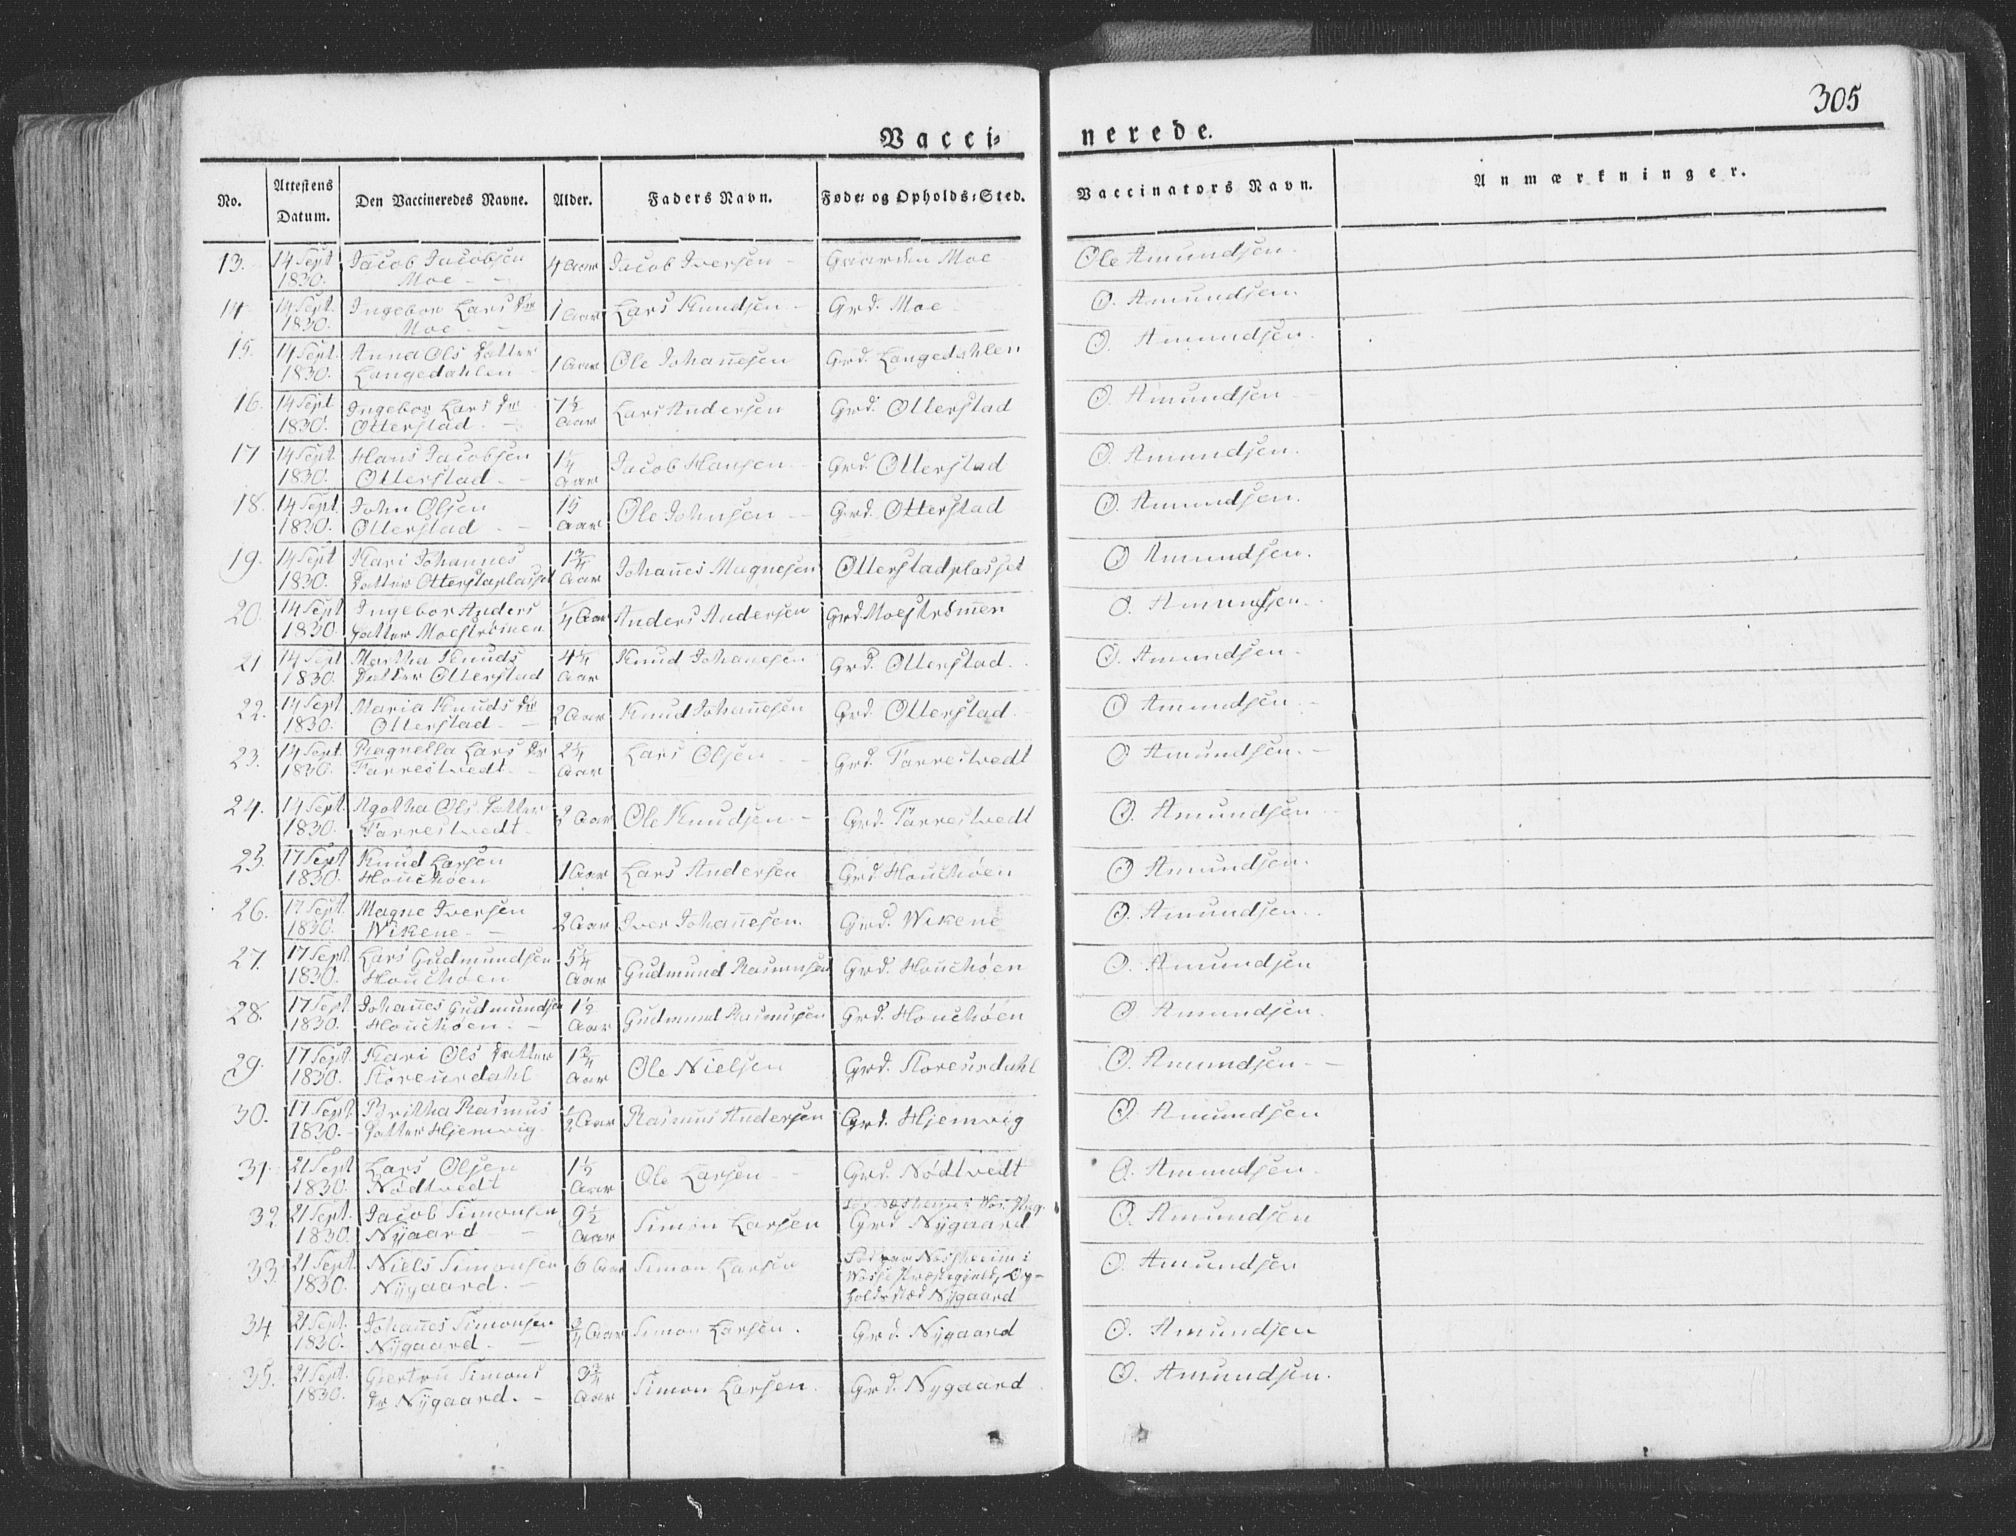 305
Vacci- nerede.
No. Attestens Datum. Den Vaccineredes Navne. Alder. Faders Navn. Føde- og Opholds-Sted. Vaccinators Navn. Anmærkninger.
13. 14 Sept 1830. Jacob Jacobsen Moe 4 Aar Jacob Iversen Gaarden Moe Ole Amundsen.
14 14 Sept. 1830. Ingebor Lars Dr Moe 1 Aar Lars Knudsen Grd. Moe O. Amundsen.
15. 14 Sept. 1830. Anna Ols Datter Langedahlen 1 Aar Ole Johañesen Grd. Langedahlen O. Amundsen.
16. 14 Sept 1830. Ingebor Lars Dr Otterstad. 7½ Aar Lars Andersen Grd. Otterstad O. Amundsen
17 14 Sept. 1830. Hans Jacobsen Otterstad. 1¼ Aar Jacob Hansen Grd. Otterstad O. Amundsen.
18. 14 Sept. 1830. John Olsen Otterstad 15 Aar Ole Johnsen Grd. Otterstad O. Amundsen.
19. 14 Sept 1830. Kari Johannes Datter Otterstaplasset 1¾ Aar Johañes Magnesen Otterstadplasset O Amundsen.
20. 14 Sept 1830. Ingebor Anders Datter Moestrømen ¼ Aar Anders Andersen Grd. Moestrom̃en O. Amundsen.
21 14 Sept 1830. Martha Knuds Datter Otterstad 4¼ Aar Knud Johanesen Grd. Otterstad. O. Amundsen.
22. 14 Sept 1830. Maria Knuds Dr Otterstad. 2 Aar Knud Johañesen Grd. Otterstad. O Amundsen.
23. 14 Sept. 1830. Ragnella Lars Dr Farrestvedt. 2¼ Aar Lars Olsen Grd. Farrestvedt O Amundsen.
24. 14 Sept. 1830. Agatha Ols Datter Farrestvedt. 2 Aar Ole Knudsen Grd. Farrestvedt O. Amundsen
25. 17 Sept 1830. Knud Larsen Houchøen 1 Aar Lars Andersen Grd. Houchøen O Amundsen.
26. 17 Sept. 1830. Magne Iversen Wikene 2 Aar Iver Johañesen. Grd. Wikene O. Amundsen.
27. 17 Sept. 1830. Lars Gudmundsen Houchøen 5¼ Aar Gudmund Rasmusen Grd. Houchøen O. Amundsen
28. 17 Sept. 1830. Johañes Gudmundsen Houchøen. 1½ Aar Gudmund Rasmusen Grd. Houchøen O Amundsen.
29. 17 Sept. 1830. Kari Ols Datter Storeurdahl 1¾ Aar Ole Nielsen Grd. Storeurdahl O. Amundsen
30. 17 Sept. 1830. Britha Rasmus Datter Hjemvig. ½ Aar Rasmus Andersen Grd. Hjemvig O. Amundsen
31. 21 Sept 1830. Lars Olsen Nødtvedt 1½ Aar Ole Larsen Grd. Nødtvedt O. Amundsen.
32 21 Sept. 1830. Jacob Simonsen Nygaard 9½ Aar Simon Larsen Grd Nygaard O. Amundsen
33. 21 Sept. 1830. Niels Simonsen Nygaard. 6 Aar Simon Larsen Nestheim i Wosse Præstegield, Op- holdsstæd Nygaard O. Amundsen
34 21 Sept. 1830. Johañes Simonsen Nygaard. ¾ Aar Simon Larsen. Grd. Nygaard O. Amundsen
35. 21 Sept. 1830. Giertru Simons Dr Nygaard. 3¾ Aar Simon Larsen. Grd. Nygaard O. Amundsen.